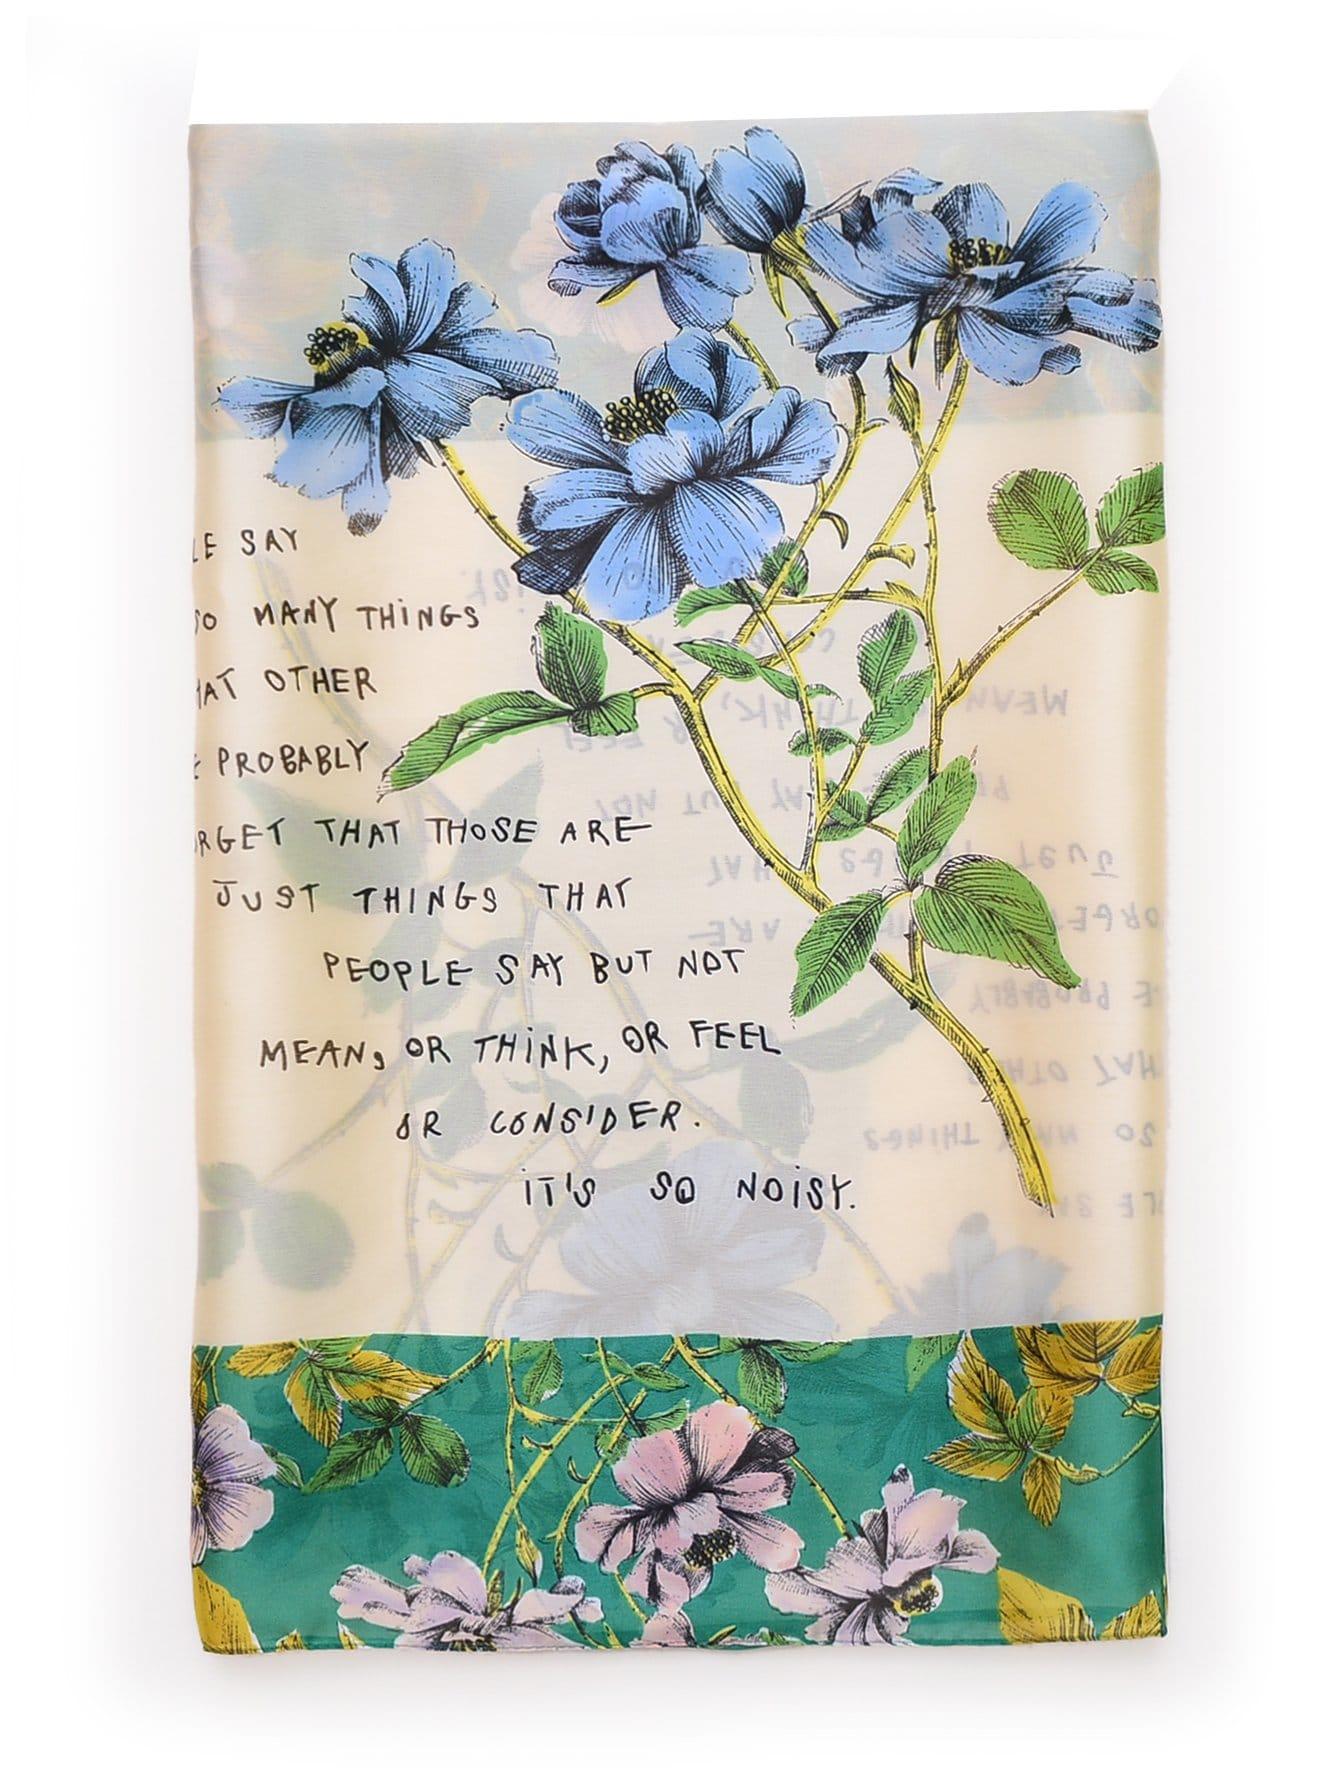 LE SAY
SO MANY THINGS
HAT OTHER
E PROBABLY
ORGET THAT THOSE ARE
JUST THINGS THAT
PEOPLE SAY BUT NOT
MEAN, OR THINK, OR FEEL
OR CONSIDER.
IT'S SO NOISY.